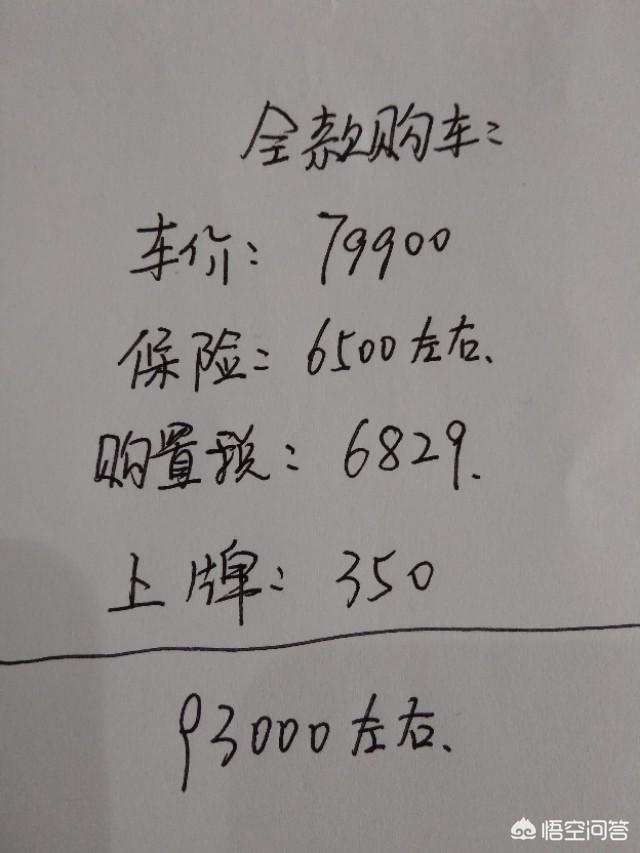 全款购车：
车价：79900
保险：6500左右.
购置税：6829.
上牌：350
93000左右.
悟空问答